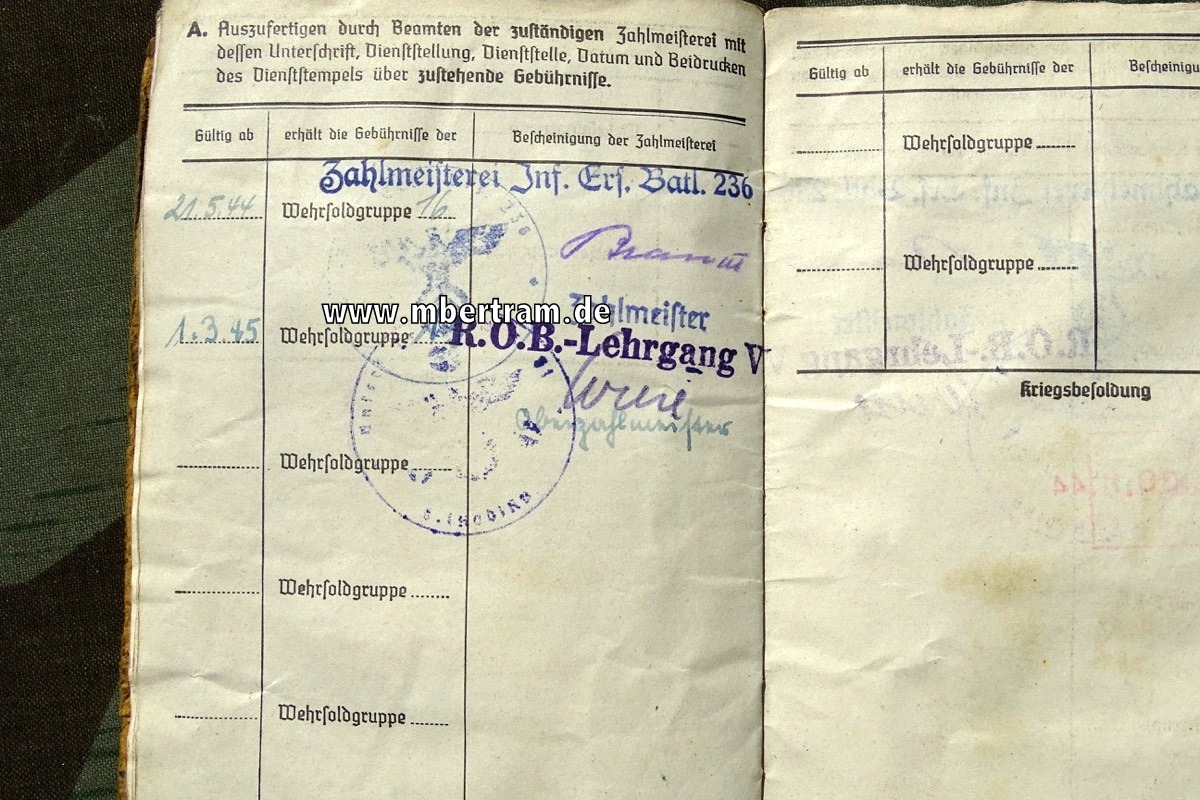 A. Auszufertigen durch Beamten der zuständigen Zahlmeisterei mit
dessen Unterschrift, Dienststellung, Dienststelle, Datum und Beidrucken
des Dienststempels über zustehende Gebührnisse.
Gültig ab erhält die Gebührnisse der Bescheinigung der Zahlmeisterei
Zahlmeisterei Inf. Ers. Batl. 236
21.5.44 Wehrsoldgruppe 16
Zahlmeister
www.mbertram.de
1.3.45 Wehrsoldgruppe
R.O.B.-Lehrgang V
Oberzahlmeister
Wehrsoldgruppe
Wehrsoldgruppe
Wehrsoldgruppe
Gültig ab erhält die Gebührnisse der
Wehrsoldgruppe
Wehrsoldgruppe
Kriegsbesoldung